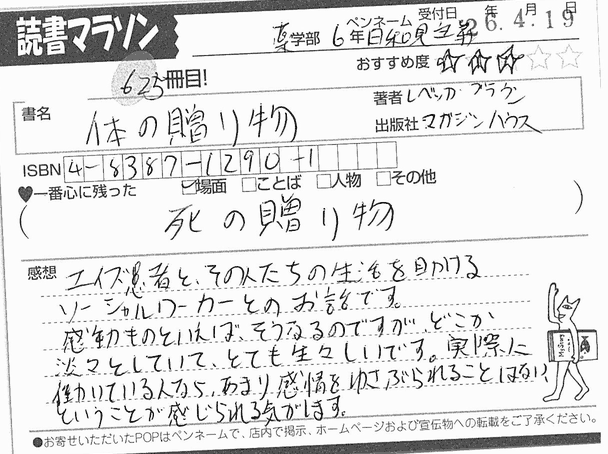 読書マラソン
薬学部 6年 ペンネーム 日和見主義 受付日 26年4月19日
623冊目!
おすすめ度 ★★★☆☆
書名 体の贈り物
著者 レベッカ ブラウン
出版社 マガジンハウス
ISBN 4-8387-1290-1
♥一番心に残った ☑場面 □ことば □人物 □その他
(死の贈り物)
感想 エイズ患者と、その人たちの生活を助ける
ソーシャルワーカーとのお話です。
感動ものといえば、そうなるのですが、どこか
淡々としていて、とても生々しいです。実際に
働いている人なら、あまり感情をゆさぶられることはない、
ということが感じられる気がします。
●お寄せいただいたPOPはペンネームで、店内で掲示、ホームページおよび宣伝物への転載をご了承ください。